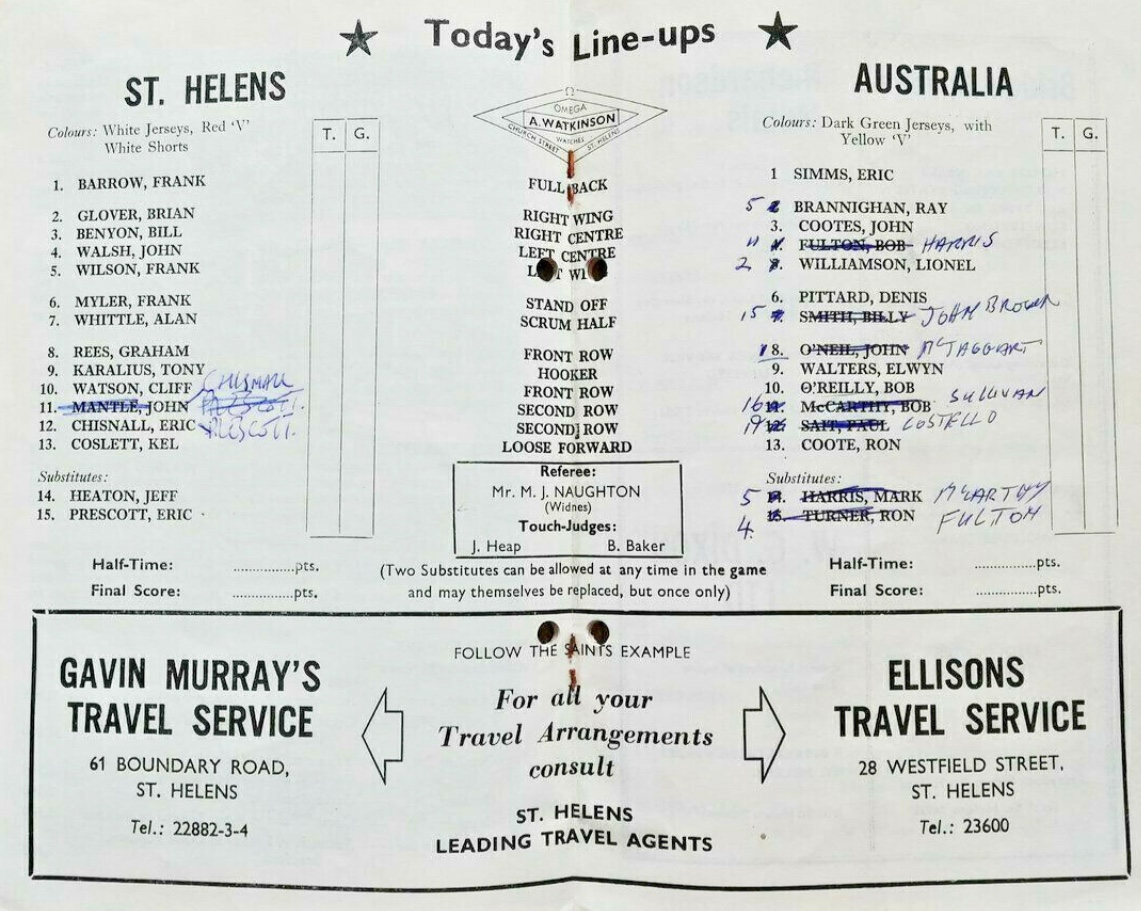 ★ Today's Line-ups ★
ST. HELENS
Colours: White Jerseys, Red 'V'
White Shorts
T. G.
1. BARROW, FRANK
2. GLOVER, BRIAN
3. BENYON, BILL
4. WALSH, JOHN
5. WILSON, FRANK
6. MYLER, FRANK
7. WHITTLE, ALAN
8. REES, GRAHAM
9. KARALIUS, TONY
10. WATSON, CLIFF CHISNALL
11. MANTLE, JOHN PRESCOTT.
12. CHISNALL, ERIC PRESCOTT.
13. COSLETT, KEL
Substitutes:
14. HEATON, JEFF
15. PRESCOTT, ERIC
Half-Time: ...............pts.
Final Score: ...............pts.
Ω
OMEGA
A. WATKINSON
WATCHES
CHURCH STREET ST. HELENS
FULL BACK
RIGHT WING
RIGHT CENTRE
LEFT CENTRE
STAND OFF
SCRUM HALF
FRONT ROW
HOOKER
FRONT ROW
SECOND ROW
SECOND ROW
LOOSE FORWARD
Referee:
Mr. M. J. NAUGHTON
(Widnes)
Touch-Judges:
J. Heap B. Baker
(Two Substitutes can be allowed at any time in the game
and may themselves be replaced, but once only)
AUSTRALIA
Colours: Dark Green Jerseys, with
Yellow 'V'
T. G.
1 SIMMS, ERIC
5 BRANNIGHAN, RAY
3. COOTES, JOHN
11 FULTON, BOB HARRIS
2 WILLIAMSON, LIONEL
6. PITTARD, DENIS
15 SMITH, BILLY JOHN BROWN
18. O'NEIL, JOHN McTAGGART
9. WALTERS, ELWYN
10. O'REILLY, BOB
16 McCARTHY, BOB SULLIVAN
19 SAIT, PAUL COSTELLO
13. COOTE, RON
Substitutes:
5 14. HARRIS, MARK McCARTHY
4. 15. TURNER, RON FULTON
Half-Time: ...............pts.
Final Score: ...............pts.
GAVIN MURRAY'S
TRAVEL SERVICE
61 BOUNDARY ROAD,
ST. HELENS
Tel.: 22882-3-4
FOLLOW THE SAINTS EXAMPLE
For all your
Travel Arrangements
consult
ST. HELENS
LEADING TRAVEL AGENTS
ELLISONS
TRAVEL SERVICE
28 WESTFIELD STREET,
ST. HELENS
Tel.: 23600